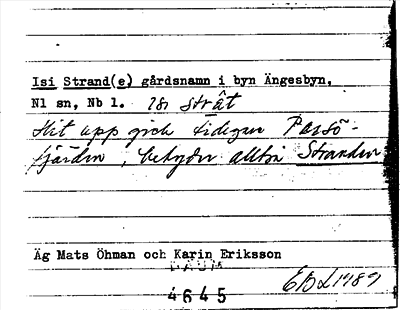 Isi Strand(e) gårdsnamn i byn Ängesbyn,
Nl sn, Nb l. isi stråt
Hit upp gick tidigare Persö-
fjärden, betyder alltså Stranden
Äg Mats Öhman och Karin Eriksson
DAUM
4645
EBL 1989